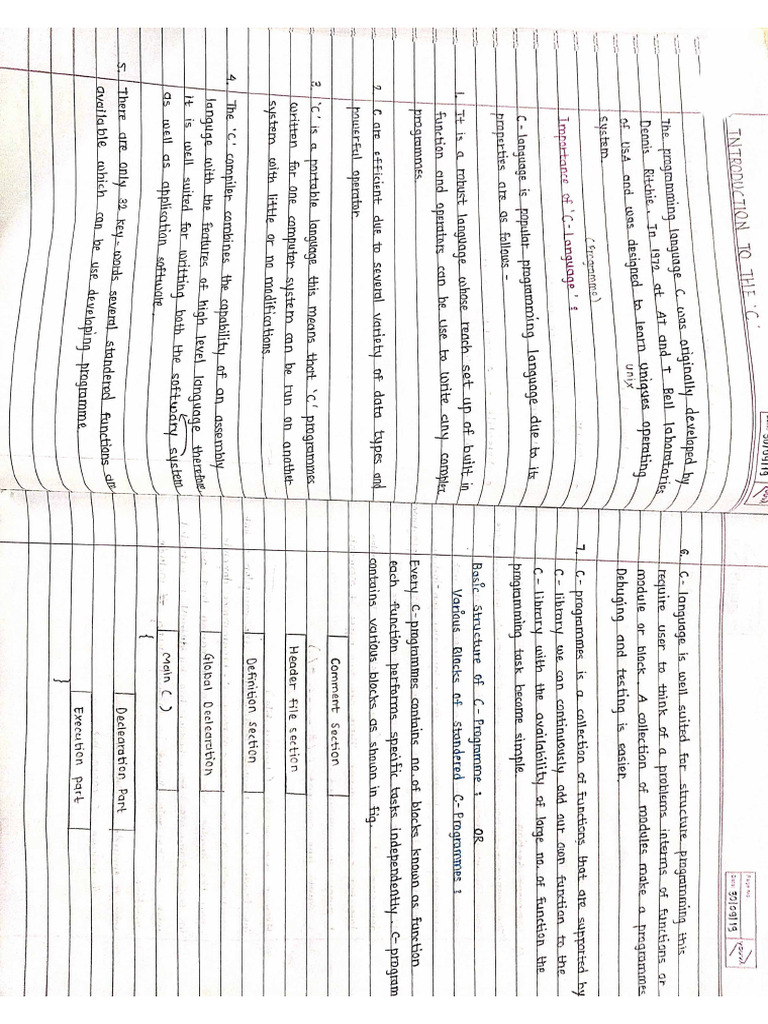 INTRODUCTION TO THE 'C'
30/09/19
The programming language C was originally developed by
Dennis Ritchie. In 1972 at AT and T Bell laboratories
of USA and was designed to learn uniques operating
unix
system.
(Programme)
Importance of 'C-Language' :
C-language is popular programming language due to its
properties are as follows -
1. It is a robust language whose reach set up of built in
function and operators can be use to write any complex
programmes.
2. C are efficient due to several variety of data types and
powerful operator
3. 'C' is a portable language this means that 'C' programmes
written for one computer system can be run on another
system with little or no modifications.
4. The 'C' compiler combines the capability of an assembly
languge with the features of high level language therefore
it is well suited for writting both the software system
as well as application software.
5. There are only 32 key-words several standered functions are
available which can be use developing programme.
Page No.
Date 30/09/19
6. C-language is well suited for structure programming this
require user to think of a problems interms of functions or
module or block. A collection of modules make a programmes
Debuging and testing is easier.
7. C-programmes is a collection of functions that are supported by
C-library we can continuously add our own function to the
C-library with the availability of large no. of function the
programming task become simple.
Basic structure of C-Programme : OR
Various Blocks of standered C-Programmes :
Every C-programmes contains no. of blocks known as function
each function performs specific tasks independently. C-program
contains various blocks as shown in fig.
Comment Section
Header file section
Definition section
Global Declearation
Main ( )
{
Declearation Part
Execution part
}